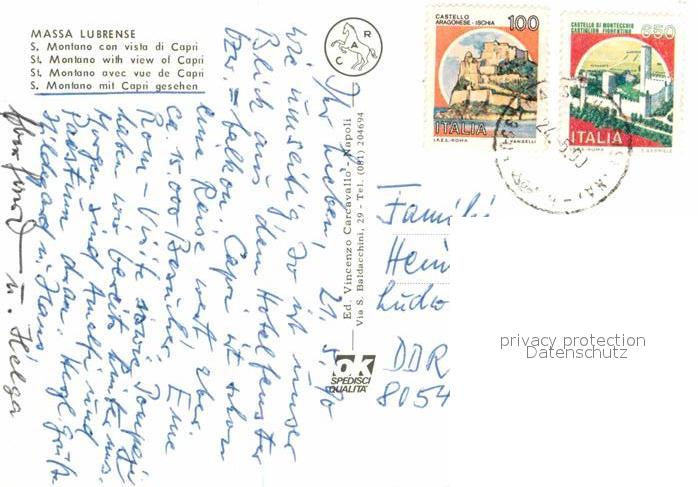 MASSA LUBRENSE
S. Montano con vista di Capri
St. Montano with view of Capri
St. Montano avec vue de Capri
S. Montano mit Capri gesehen
CAR
Ed. Vincenzo Carcavallo - Napoli
Via S. Baldacchini, 29 - Tel. (081) 204694
ok
SPEDISCI
QUALITA'
CASTELLO
ARAGONESE - ISCHIA
100
ITALIA
I.P.S.-ROMA
CASTELLO DI MONTECCHIO
CASTIGLION FIORENTINO
650
ITALIA
21.5.90
Ihr Lieben,
wie umseitig, so ist unser
Blick aus dem Hotelfenster
bzw. -balkon. Capri ist schon
eine Reise wert, aber
ca. 15 000 Besucher! Eine
Rom-Visite sowie Pompeji
haben wir bereits hinter uns.
Morgen sind Amalfi und
Paestum dran. Herzl. Grüße
Hildegard u. Hans
u. Helga
Famili
Hein
Ludw
DDR
8054
privacy protection
Datenschutz